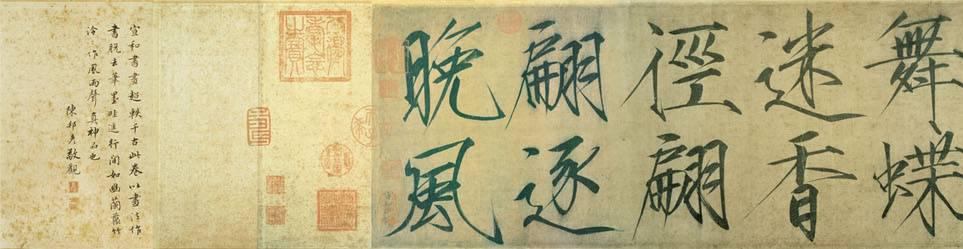 舞蝶
迷香
徑翩
翩逐
晚風
宣和書畫超軼千古此卷以畫法作
書脫去筆墨畦逕行間如幽蘭叢竹
泠〻作風雨聲真神品也
陳邦彥敬觀